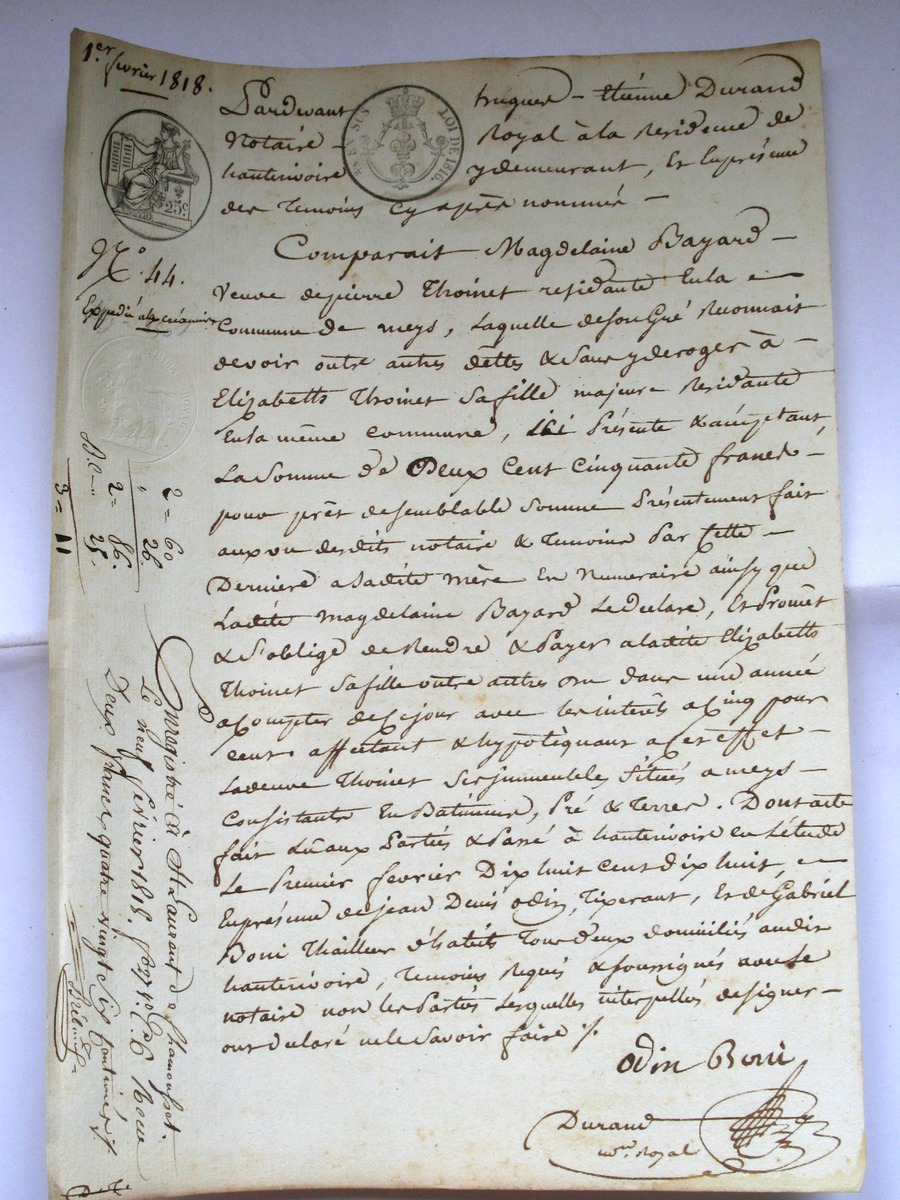 1.er février 1818.
Pardevant hugues - Etiénne Durand
Notaire - Royal à la Residence de
hauterivoire ydemeurant, Et Enprésence
des temoins Cy après nommés -
LOI DE 1816
25c
No. 44.
Comparait Magdelaine Bayard -
Veuve depierre Thoinet residante Enla
Commune de meys, Laquelle desonGré Reconnait
devoir outre autres dettes & Sans yderoger à -
Elizabeth Thoinet Safille majeure Residante
Enla même Commune, ici Présente & acceptant,
La Somme de Deux Cent Cinquante francs -
pour prêt desemblable Somme Présentement fait
auxvu desdits notaire & Temoins Par Cette -
Derniere aladite mère En Numeraire ainsy que
Ladite Magdelaine Bayard Ledeclare, Et Promet
& S'oblige de Rendre & Payer aladite Elizabeth
Thoinet Safille outre autres Dans une année
aCompter deCejour avec les interêts aCinq pour
cent affectant & hypotéquant aCet effet -
Ladeuve Thoinet Ses immeubles Situés ameys -
Consistants En Batiments, Pré & Terres. Dont acte
fait Lu aux Parties & Passé à hauterivoire en L'étude
Le Premier fevrier Dix huit cent dix huit,
Enprésence de jean Denis odin, Tixerant, Et de Gabriel
Boni Thailleur d'habits Tous deux domiciliés audit
hauterivoire, Temoins Requis & soussignés avec le
notaire non les Parties Lesquelles interpellés designer -
ont declaré ne le Savoir faire ./.
odin Boni
Durand
Royal
2 = 60
26.
2 = 86.
25.
3 = 11
Enregistré à St Laurent de Chamousset.
Le neuf fevrier 1818.
Deux francs quatre vingt Six Centimes ./.